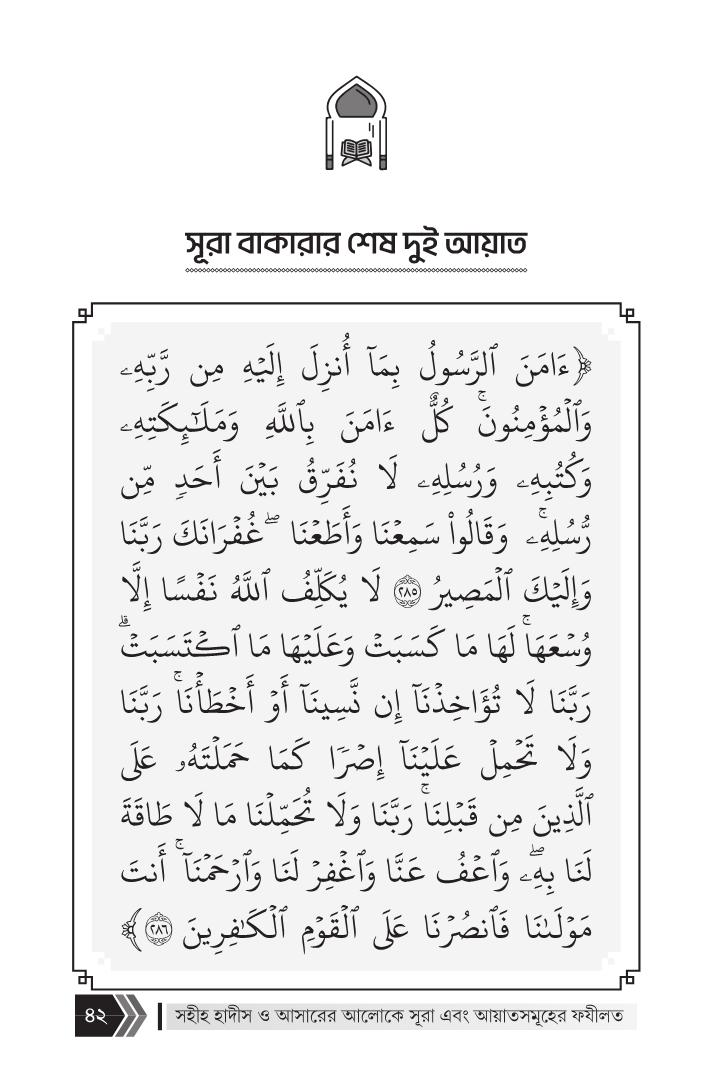 সূরা বাকারার শেষ দুই আয়াত
﴿ءَامَنَ ٱلرَّسُولُ بِمَآ أُنزِلَ إِلَيْهِ مِن رَّبِّهِۦ
وَٱلْمُؤْمِنُونَۚ كُلٌّ ءَامَنَ بِٱللَّهِ وَمَلَـٰٓئِكَتِهِۦ
وَكُتُبِهِۦ وَرُسُلِهِۦ لَا نُفَرِّقُ بَيْنَ أَحَدٍ مِّن
رُّسُلِهِۦۚ وَقَالُوا۟ سَمِعْنَا وَأَطَعْنَاۖ غُفْرَانَكَ رَبَّنَا
وَإِلَيْكَ ٱلْمَصِيرُ ٢٨٥ لَا يُكَلِّفُ ٱللَّهُ نَفْسًا إِلَّا
وُسْعَهَاۚ لَهَا مَا كَسَبَتْ وَعَلَيْهَا مَا ٱكْتَسَبَتْۗ
رَبَّنَا لَا تُؤَاخِذْنَآ إِن نَّسِينَآ أَوْ أَخْطَأْنَاۚ رَبَّنَا
وَلَا تَحْمِلْ عَلَيْنَآ إِصْرًا كَمَا حَمَلْتَهُۥ عَلَى
ٱلَّذِينَ مِن قَبْلِنَاۚ رَبَّنَا وَلَا تُحَمِّلْنَا مَا لَا طَاقَةَ
لَنَا بِهِۦۖ وَٱعْفُ عَنَّا وَٱغْفِرْ لَنَا وَٱرْحَمْنَآۚ أَنتَ
مَوْلَىٰنَا فَٱنصُرْنَا عَلَى ٱلْقَوْمِ ٱلْكَـٰفِرِينَ ٢٨٦﴾
৪২ সহীহ হাদীস ও আসারের আলোকে সূরা এবং আয়াতসমূহের ফযীলত